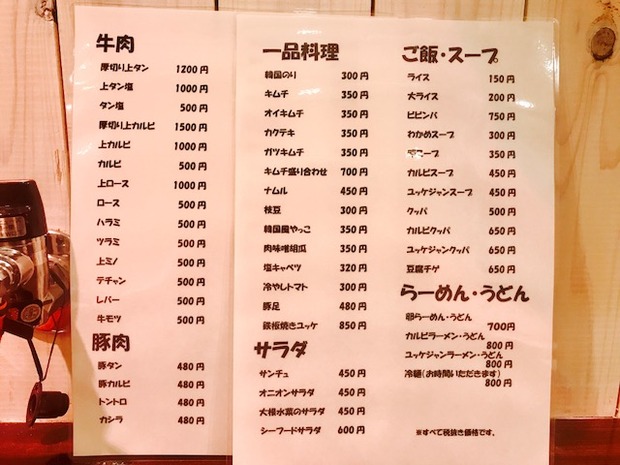 牛肉
厚切り上タン 1200円
上タン塩 1000円
タン塩 500円
厚切り上カルビ 1500円
上カルビ 1000円
カルビ 500円
上ロース 1000円
ロース 500円
ハラミ 500円
ツラミ 500円
上ミノ 500円
テチャン 500円
レバー 500円
牛モツ 500円
豚肉
豚タン 480円
豚カルビ 480円
トントロ 480円
カシラ 480円
一品料理
韓国のり 300円
キムチ 350円
オイキムチ 350円
カクテキ 350円
ガツキムチ 350円
キムチ盛り合わせ 700円
ナムル 450円
枝豆 300円
韓国風やっこ 350円
肉味噌胡瓜 350円
塩キャベツ 320円
冷やしトマト 300円
豚足 480円
鉄板焼きユッケ 850円
サラダ
サンチュ 450円
オニオンサラダ 450円
大根水菜のサラダ 450円
シーフードサラダ 600円
ご飯・スープ
ライス 150円
大ライス 200円
ビビンバ 750円
わかめスープ 300円
スープ 350円
カルビスープ 450円
ユッケジャンスープ 450円
クッパ 500円
カルビクッパ 650円
ユッケジャンクッパ 650円
豆腐チゲ 650円
らーめん・うどん
らーめん・うどん
700円
カルビラーメン・うどん
800円
ユッケジャンラーメン・うどん
800円
冷麺(お時間いただきます)
800円
※すべて税抜き価格です。